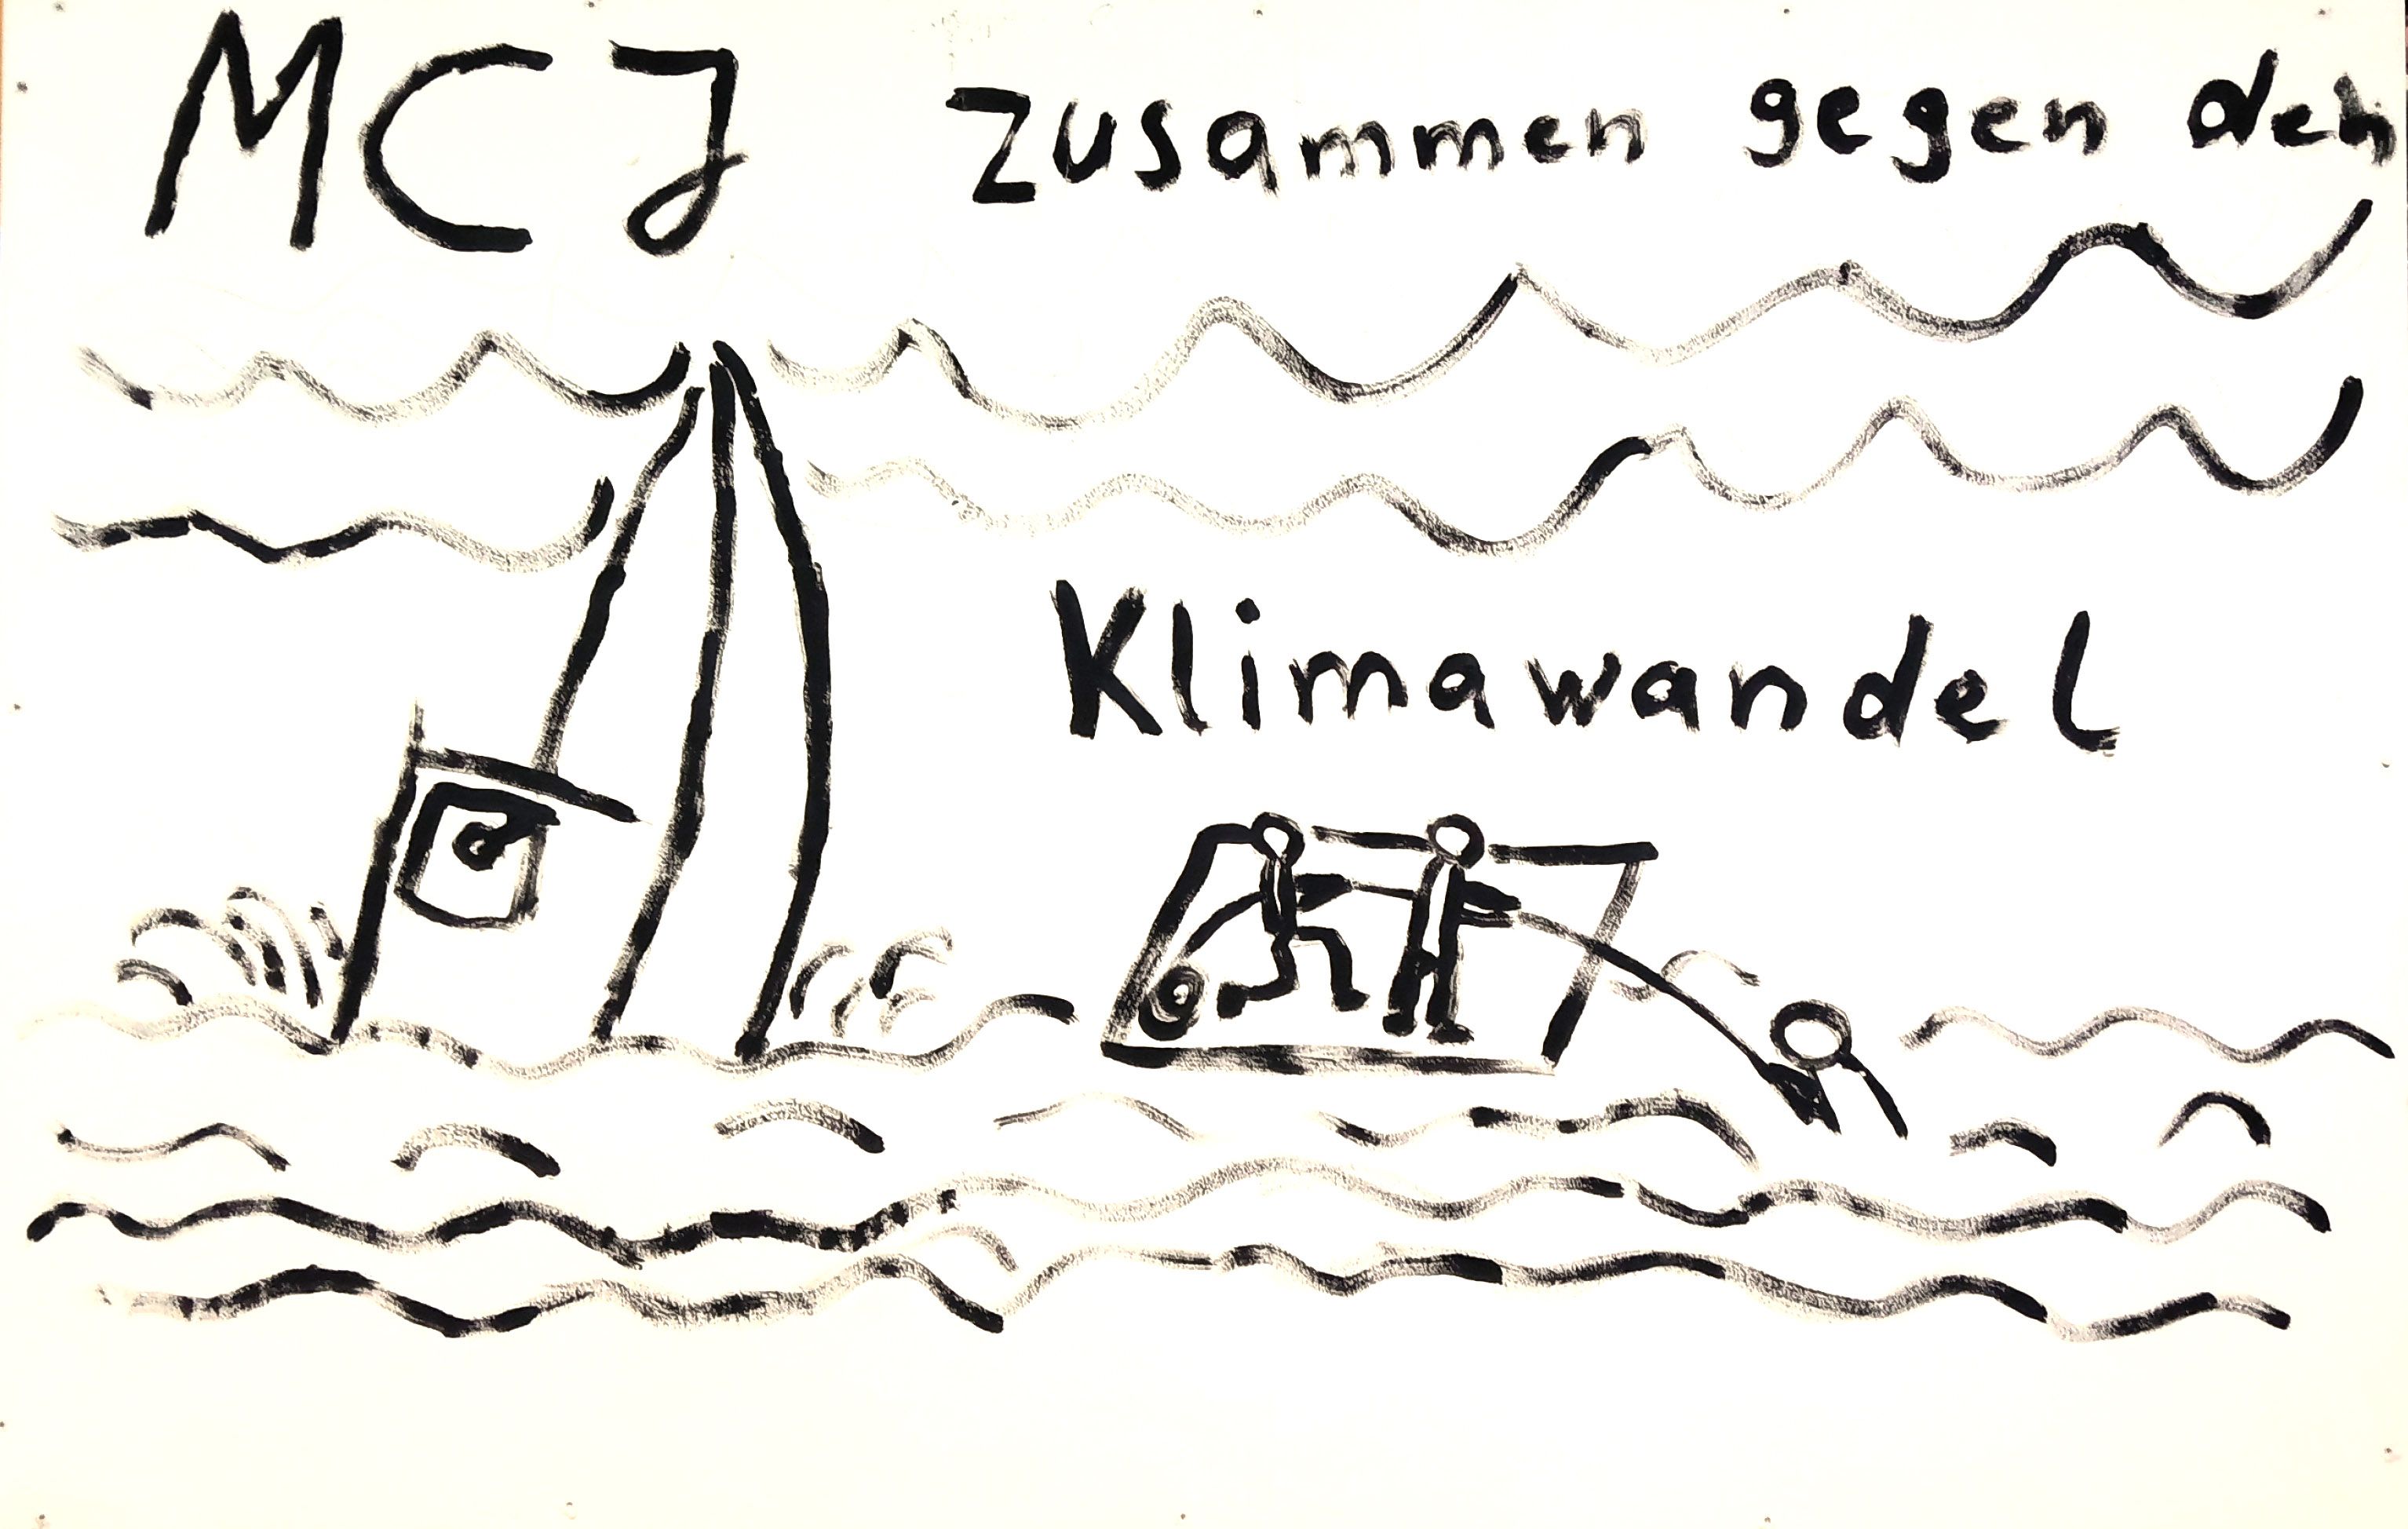 MCJ zusammen gegen den
Klimawandel